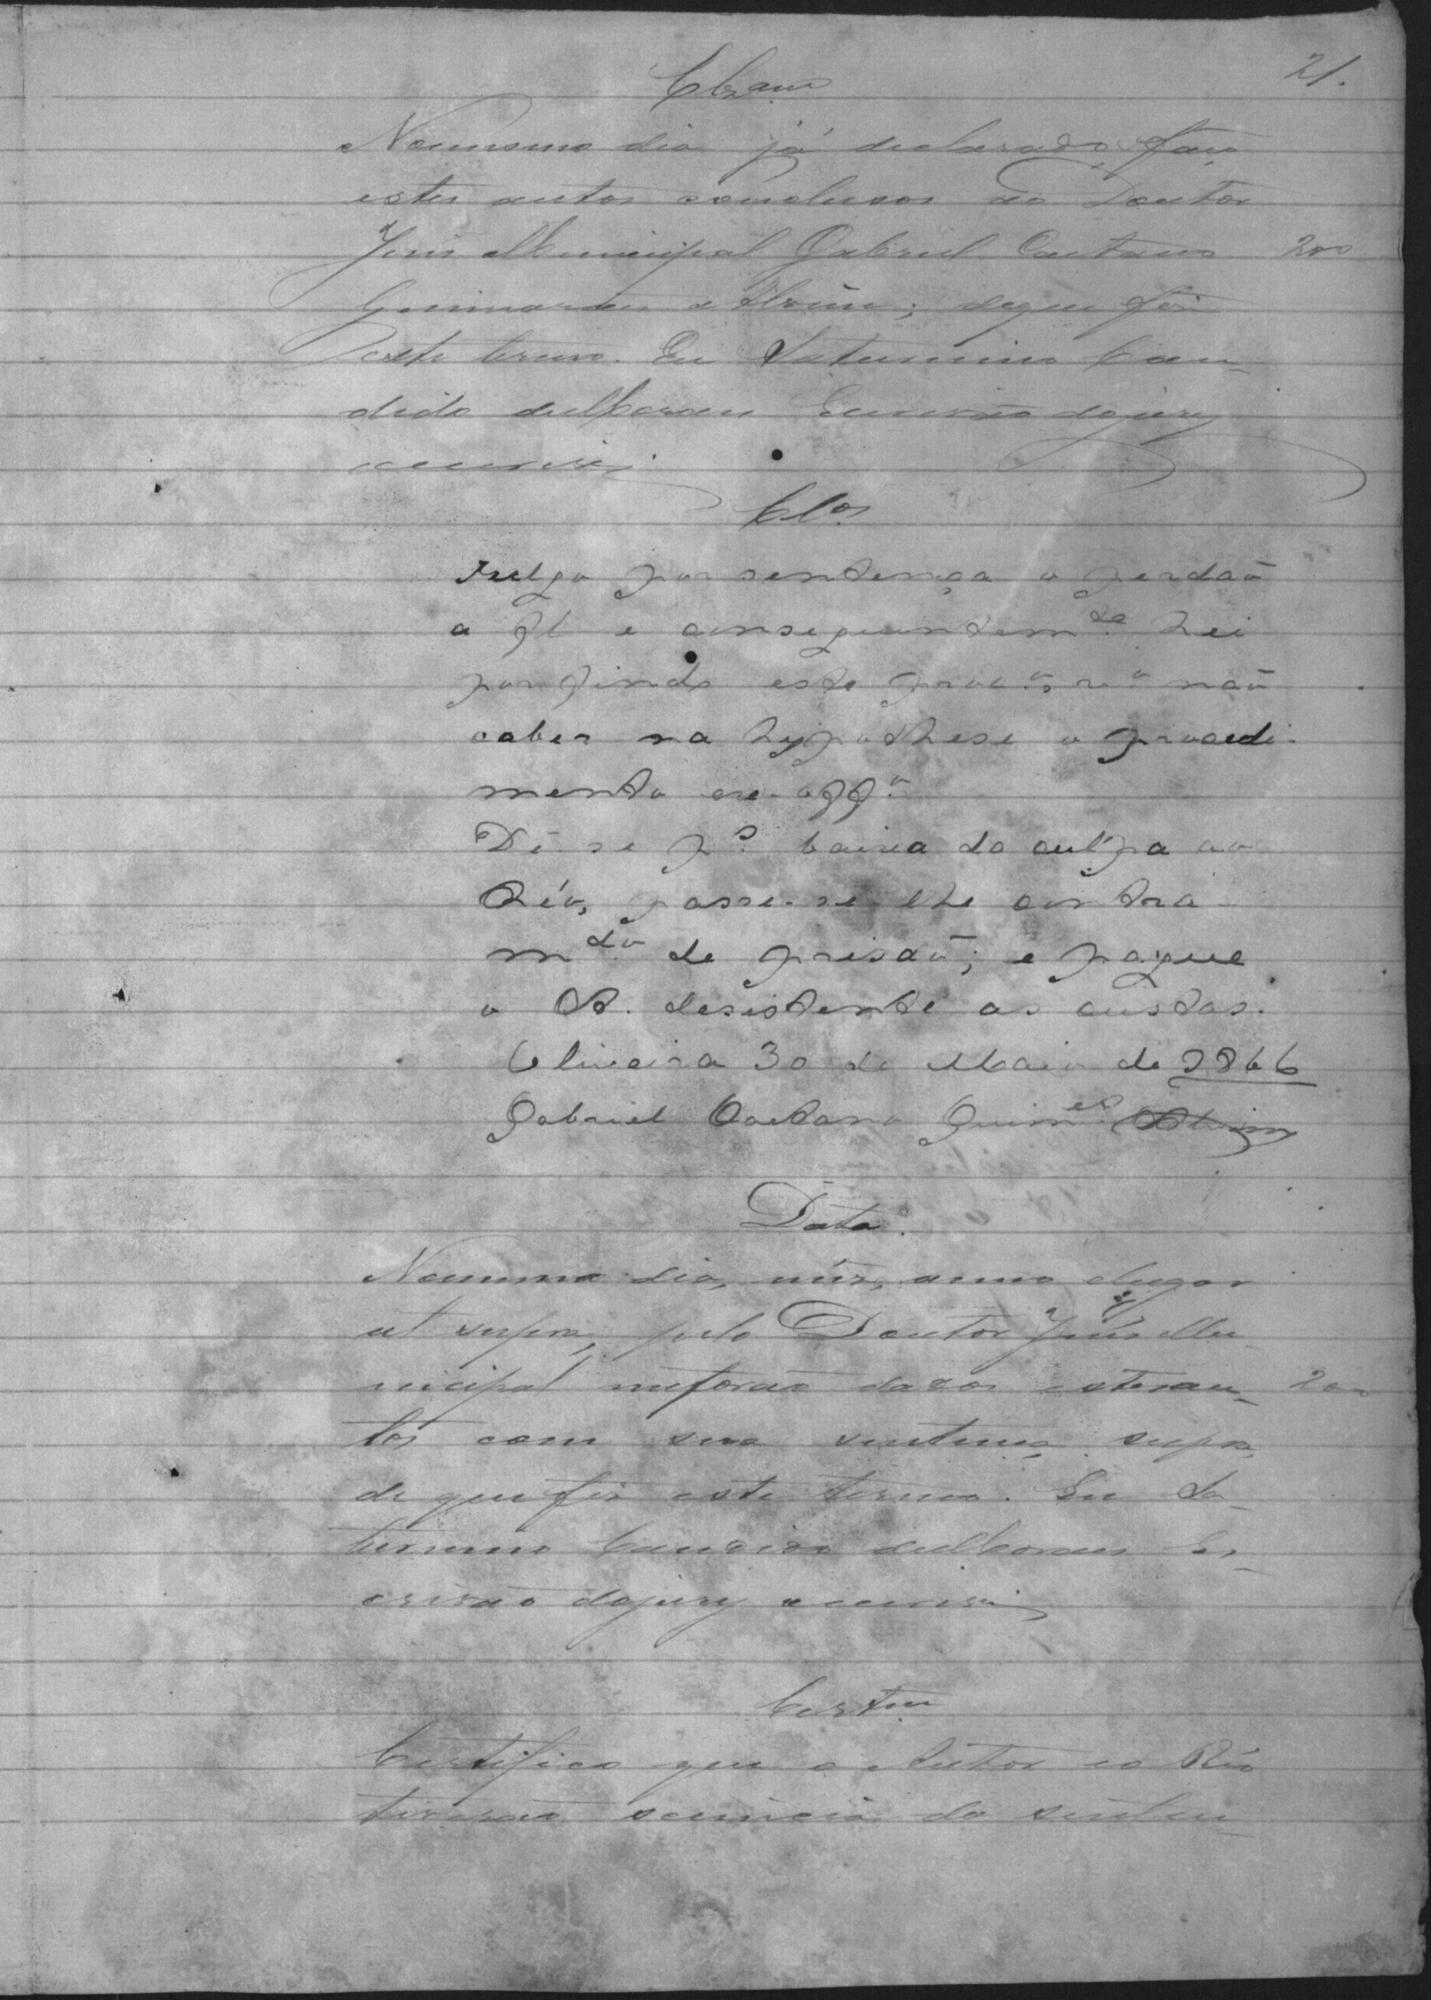 21.
Clzam
No mesmo dia já declarado, faço
estes autos conclusos ao Doutor
Juis Municipal Gabriel Caetano 200
Guimarães e Alvim; de que fis
este termo. Eu Saturnino Can-
dido de Moraes Escrivão do jury
escrevi
Clos
Julgo por sentença o perdaõ
a fl e conseguintemte hei
por findo este proc.o, v.o naõ
caber na hypothese o procedi-
mento ex-off.o
Dê-se p.s baixa da culpa ao
Réo, passe-se-lhe contra-
mdo de prisaõ; e pague
o A. desistente as custas.
Oliveira 30 de Maio de 1866
Gabriel Caetano Guimes Alvim
Data.
No mesmo dia, mês, anno e lugar
ut supra, pelo Doutor Juis Mu-
nicipal me forão dados estes au- 200
tos com sua sentença supra,
de que fis este termo. Eu Sa-
turnino Candido de Moraes Es-
crivão do jury escrevi
Certam
Certifico que o Autor e o Réo
tiverão sciencia da senten-